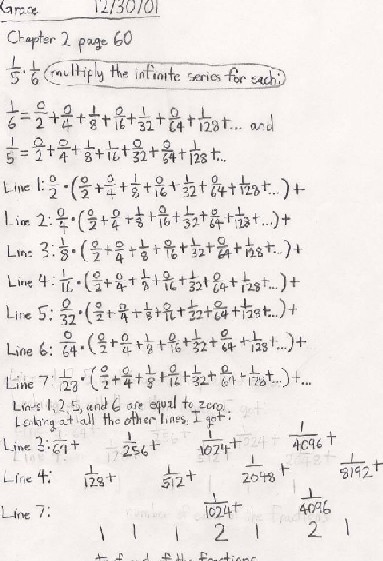 Grace 12/30/01
Chapter 2 page 60
1/5 · 1/6 (multiply the infinite series for each:)
1/6 = 0/2 + 0/4 + 1/8 + 0/16 + 1/32 + 0/64 + 1/128 + ... and
1/5 = 0/2 + 0/4 + 1/8 + 1/16 + 0/32 + 0/64 + 1/128 + ...
Line 1: 0/2 · (0/2 + 0/4 + 1/8 + 0/16 + 1/32 + 0/64 + 1/128 + ...) +
Line 2: 0/4 · (0/2 + 0/4 + 1/8 + 0/16 + 1/32 + 0/64 + 1/128 + ...) +
Line 3: 1/8 · (0/2 + 0/4 + 1/8 + 0/16 + 1/32 + 0/64 + 1/128 + ...) +
Line 4: 1/16 · (0/2 + 0/4 + 1/8 + 0/16 + 1/32 + 0/64 + 1/128 + ...) +
Line 5: 0/32 · (0/2 + 0/4 + 1/8 + 0/16 + 1/32 + 0/64 + 1/128 + ...) +
Line 6: 0/64 · (0/2 + 0/4 + 1/8 + 0/16 + 1/32 + 0/64 + 1/128 + ...) +
Line 7: 1/128 · (0/2 + 0/4 + 1/8 + 0/16 + 1/32 + 0/64 + 1/128 + ...) + ...
Lines 1, 2, 5, and 6 are equal to zero.
Looking at all the other lines, I got:
Line 3: 1/64 + 1/256 + 1/1024 + 1/4096 +
Line 4: 1/128 + 1/512 + 1/2048 + 1/8192 +
Line 7: 1/1024 + 1/4096
1 1 1 2 1 2 1
of the fractions